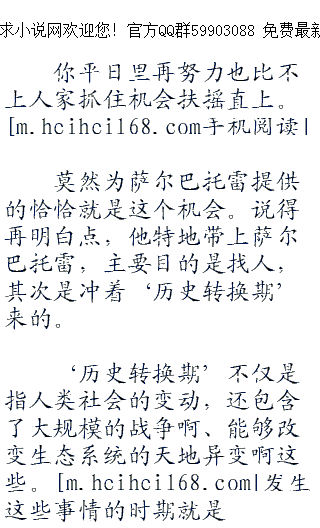 求小说网欢迎您！官方QQ群59903088 免费最新
你平日里再努力也比不
上人家抓住机会扶摇直上。
[m.hcihci168.com手机阅读]
莫然为萨尔巴托雷提供
的恰恰就是这个机会。说得
再明白点，他特地带上萨尔
巴托雷，主要目的是找人，
其次是冲着‘历史转换期’
来的。
‘历史转换期’不仅是
指人类社会的变动，还包含
了大规模的战争啊、能够改
变生态系统的天地异变啊这
些。[m.hcihci168.com|发生
这些事情的时期就是